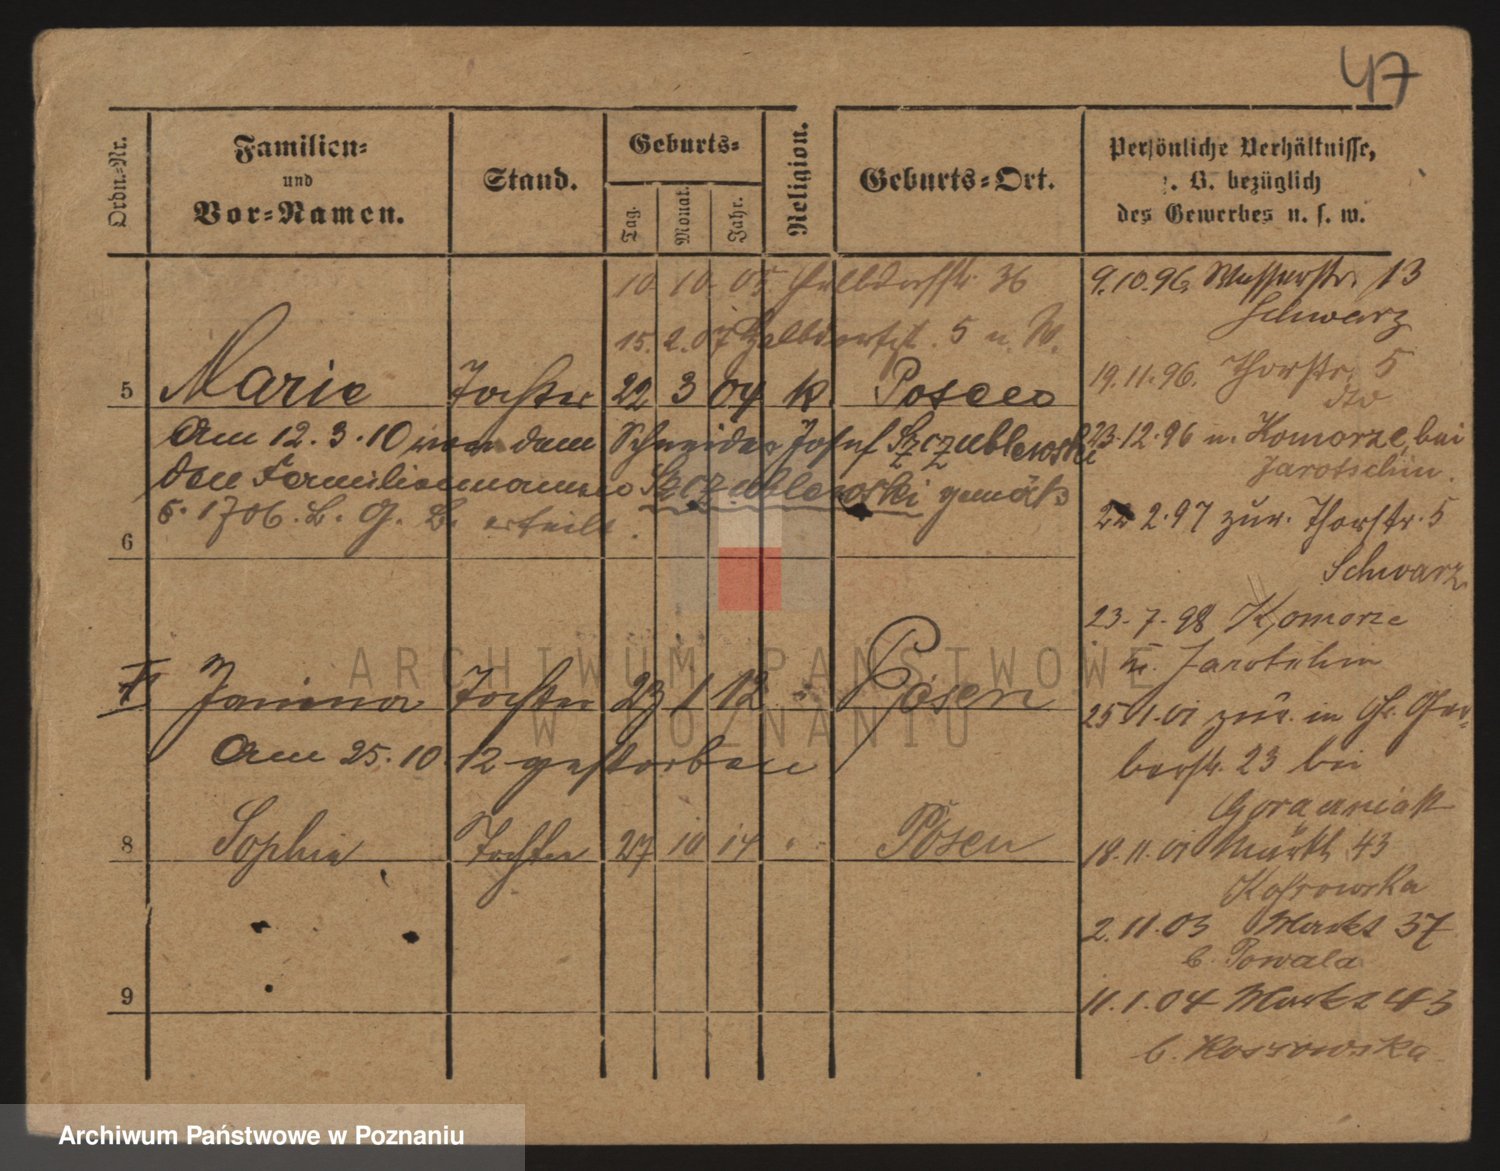 47
Ordn.-Nr.
Familien-
und
Vor-Namen.
Stand.
Geburts-
Tag.
Monat.
Jahr.
Religion.
Geburts-Ort.
Persönliche Verhältnisse,
z. B. bezüglich
des Gewerbes u. s. w.
10 10. 05 Halbdorfstr. 36
15. 2. 07 Halbdorfst. 5 u. W.
5 Marie Tochter 22 3 04 k. Posen
Am 12. 3. 10 von dem Schneider Josef Szczublewski
den Familiennamen Szczublewski gemäß
§. 1706. B. G. B. erteilt.
6
7 Janina Tochter 23 1 12 " Posen
Am 25. 10. 12 gestorben
8 Sophie Tochter 27 10 14 " Posen
9
9. 10. 96. Wasserstr. 13
Schwarz
19. 11. 96. Thorstr. 5
dto
23. 12. 96 n. Komorze, bei
Jarotschin.
22 2. 97 zur. Thorstr. 5
Schwarz
23. 7. 98 Komorze
n. Jarotschin
25 1. 01 zur. in Gr. Ger-
berstr. 23 bei
18. 11. 01 Markt 43
Kossowska
2. 11. 03 Markt 37
b. Powala
11. 1. 04 Markt 43
b. Kossowska
ARCHIWUM PAŃSTWOWE
W POZNANIU
Archiwum Państwowe w Poznaniu